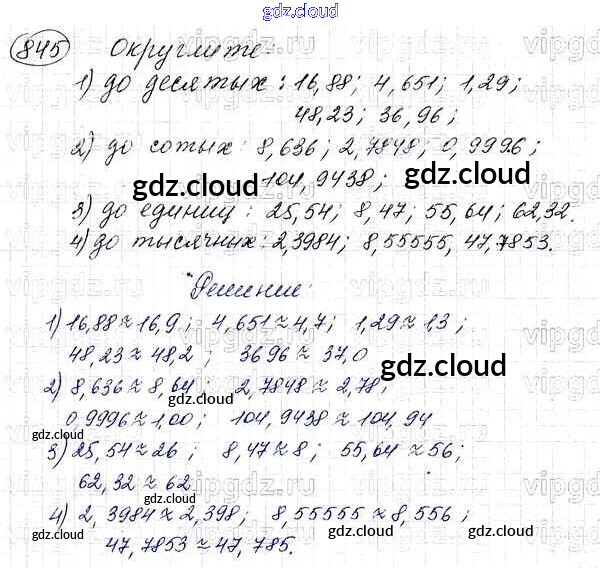 gdz.cloud
845 Округлите:
1) до десятых: 16,88; 4,651; 1,29;
48,23; 36,96;
2) до сотых: 8,636; 2,7848; 0,9996;
104,9438;
gdz.cloud gdz.cloud
3) до единиц: 25,54; 8,47; 55,64; 62,32.
4) до тысячных: 2,3984; 8,55555, 47,7853.
Решение:
1) 16,88≈16,9; 4,651≈4,7; 1,29≈1,3;
48,23≈48,2; 36 96≈37,0
gdz.cloud
2) 8,636≈8,64 2,7848≈2,78;
gdz.cloud
0,9996≈1,00; 104,9438≈104,94
gdz.cloud
3) 25,54≈26; 8,47≈8; 55,64≈56;
62,32≈62
gdz.cloud
4) 2,3984≈2,398; 8,55555≈8,556;
gdz.cloud
47,7853≈47,785.